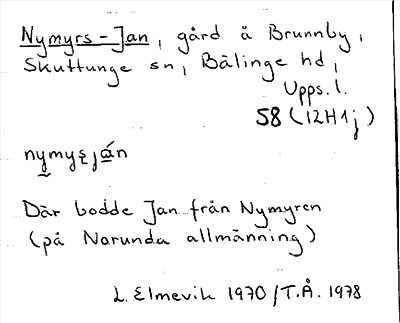 Nymyrs-Jan, gård å Brunnby,
Skuttunge sn, Bälinge hd,
Upps. l.
58 (12H1j)
nymyʂján
Där bodde Jan från Nymyren
(på Norunda allmänning)
L. Elmevik 1970/T.Å. 1978